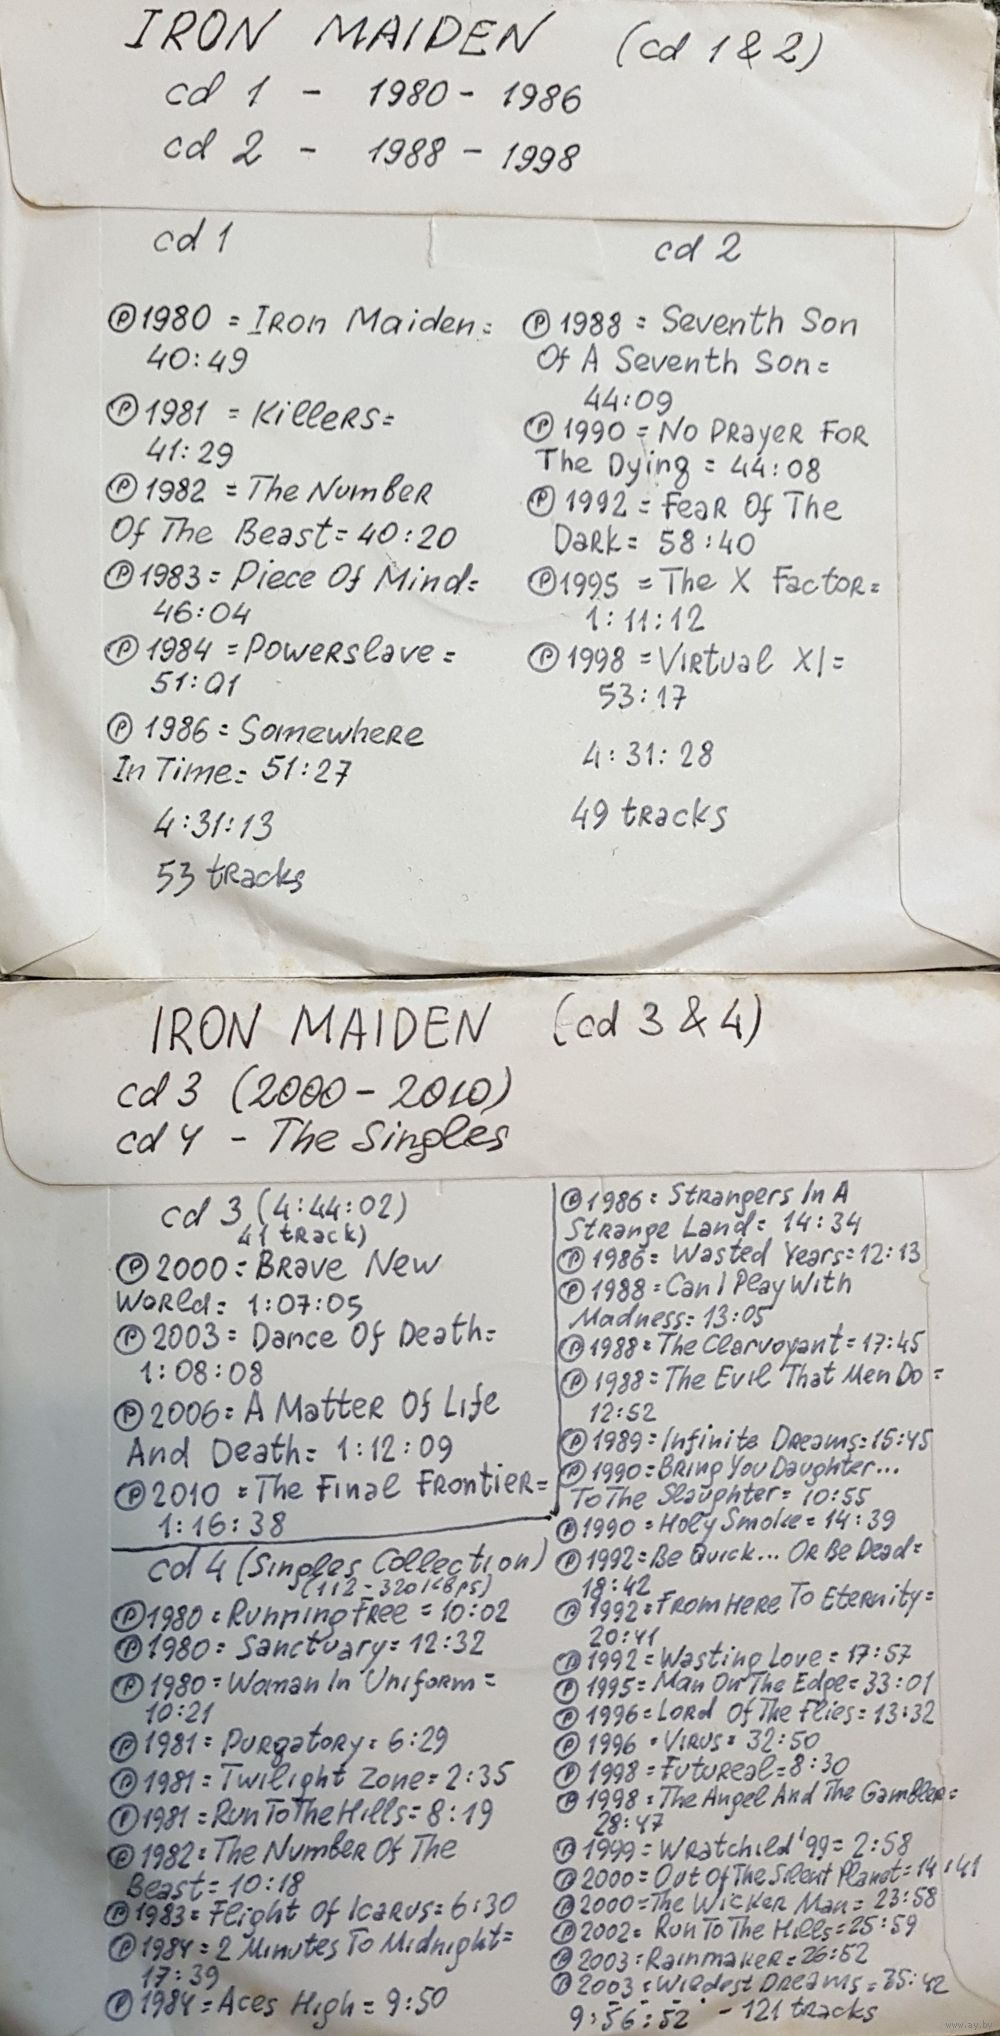 IRON MAIDEN (cd 1 & 2)
cd 1 - 1980 - 1986
cd 2 - 1988 - 1998
cd 1
Ⓟ 1980 = Iron Maiden =
40:49
Ⓟ 1981 = Killers =
41:29
Ⓟ 1982 = The Number
Of The Beast = 40:20
Ⓟ 1983 = Piece Of Mind =
46:04
Ⓟ 1984 = Powerslave =
51:01
Ⓟ 1986 = Somewhere
In Time = 51:27
4:31:13
53 tracks
cd 2
Ⓟ 1988 = Seventh Son
Of A Seventh Son =
44:09
Ⓟ 1990 = No Prayer For
The Dying = 44:08
Ⓟ 1992 = Fear Of The
Dark = 58:40
Ⓟ 1995 = The X Factor =
1:11:12
Ⓟ 1998 = Virtual XI =
53:17
4:31:28
49 tracks
IRON MAIDEN (cd 3 & 4)
cd 3 (2000 - 2010)
cd 4 - The Singles
cd 3 (4:44:02)
41 track)
Ⓟ 2000 = Brave New
World = 1:07:05
Ⓟ 2003 = Dance Of Death =
1:08:08
Ⓟ 2006 = A Matter Of Life
And Death = 1:12:09
Ⓟ 2010 = The Final Frontier =
1:16:38
cd 4 (Singles Collection)
(112 - 320 KBps)
Ⓟ 1980 = Running Free = 10:02
Ⓟ 1980 = Sanctuary = 12:32
Ⓟ 1980 = Woman In Uniform =
10:21
Ⓟ 1981 = Purgatory = 6:29
Ⓟ 1981 = Twilight Zone = 2:35
Ⓟ 1981 = Run To The Hills = 8:19
Ⓟ 1982 = The Number Of The
Beast = 10:18
Ⓟ 1983 = Flight Of Icarus = 6:30
Ⓟ 1984 = 2 Minutes To Midnight =
17:39
Ⓟ 1984 = Aces High = 9:50
Ⓟ 1986 = Strangers In A
Strange Land = 14:34
Ⓟ 1986 = Wasted Years = 12:13
Ⓟ 1988 = Can I Play With
Madness = 13:05
Ⓟ 1988 = The Clarvoyant = 17:45
Ⓟ 1988 = The Evil That Men Do =
12:52
Ⓟ 1989 = Infinite Dreams = 15:45
Ⓟ 1990 = Bring You Daughter...
To The Slaughter = 10:55
Ⓟ 1990 = Holy Smoke = 14:39
Ⓟ 1992 = Be Quick... Or Be Dead =
18:42
Ⓟ 1992 = From Here To Eternity =
20:41
Ⓟ 1992 = Wasting Love = 17:57
Ⓟ 1995 = Man On The Edge = 33:01
Ⓟ 1996 = Lord Of The Flies = 13:32
Ⓟ 1996 = Virus = 32:50
Ⓟ 1998 = Futureal = 8:30
Ⓟ 1998 = The Angel And The Gambler =
28:47
Ⓟ 1999 = Wratchild '99 = 2:58
Ⓟ 2000 = Out Of The Silent Planet = 14:41
Ⓟ 2000 = The Wicker Man = 23:58
Ⓟ 2002 = Run To The Hills = 25:59
Ⓟ 2003 = Rainmaker = 26:52
Ⓟ 2003 = Wildest Dreams = 35:42
9:56:52 - 121 tracks
www.ay.by